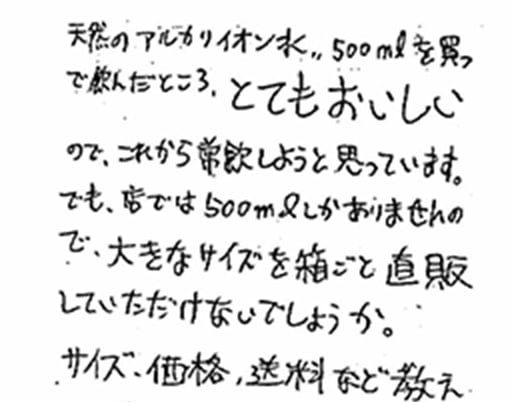 天然のアルカリイオン水〃500mlを買っ
て飲んだところ、とてもおいしい
ので、これから常飲しようと思っています。
でも、店では500mlしかありませんの
で、大きなサイズを箱ごと直販
していただけないでしょうか。
サイズ、価格、送料など教え